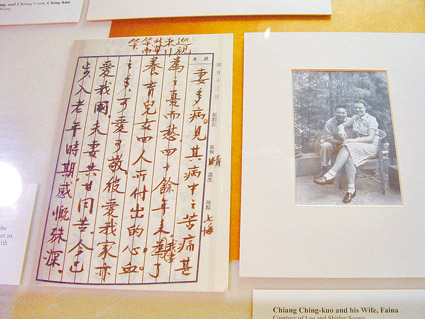 Ching-kuo
妻多病。見其病中之苦痛甚
為之憂而愁四十餘年來
養育兒女四人所付出的心血
之多可愛可敬彼愛我家亦
愛我國夫妻共甘同苦今已
步入老年時期感慨殊深。
晴
溫度
地點
七海
Chiang Ching-kuo and his Wife, Faina
Courtesy of Leo and Shirley Soong